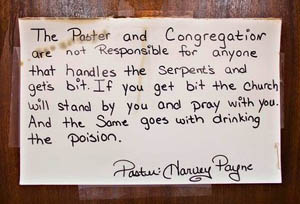 The Paster and Congregation
are not Responsible for anyone
that handles the Serpent's and
get's bit. If you get bit the church
will stand by you and pray with you.
And the Same goes with drinking
the poision.
Paster: Harvey Payne